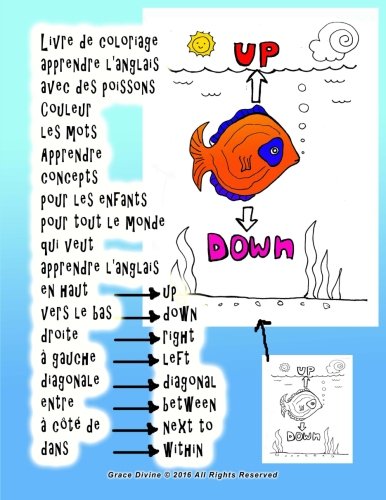 Livre de coloriage
apprendre l'anglais
avec des poissons
Couleur
les mots
Apprendre
concepts
pour les enfants
pour tout le monde
qui veut
apprendre l'anglais
en haut up
vers le bas down
droite right
à gauche left
diagonale diagonal
entre between
à côté de next to
dans within
UP
DOWN
UP
DOWN
Grace Divine © 2016 All Rights Reserved